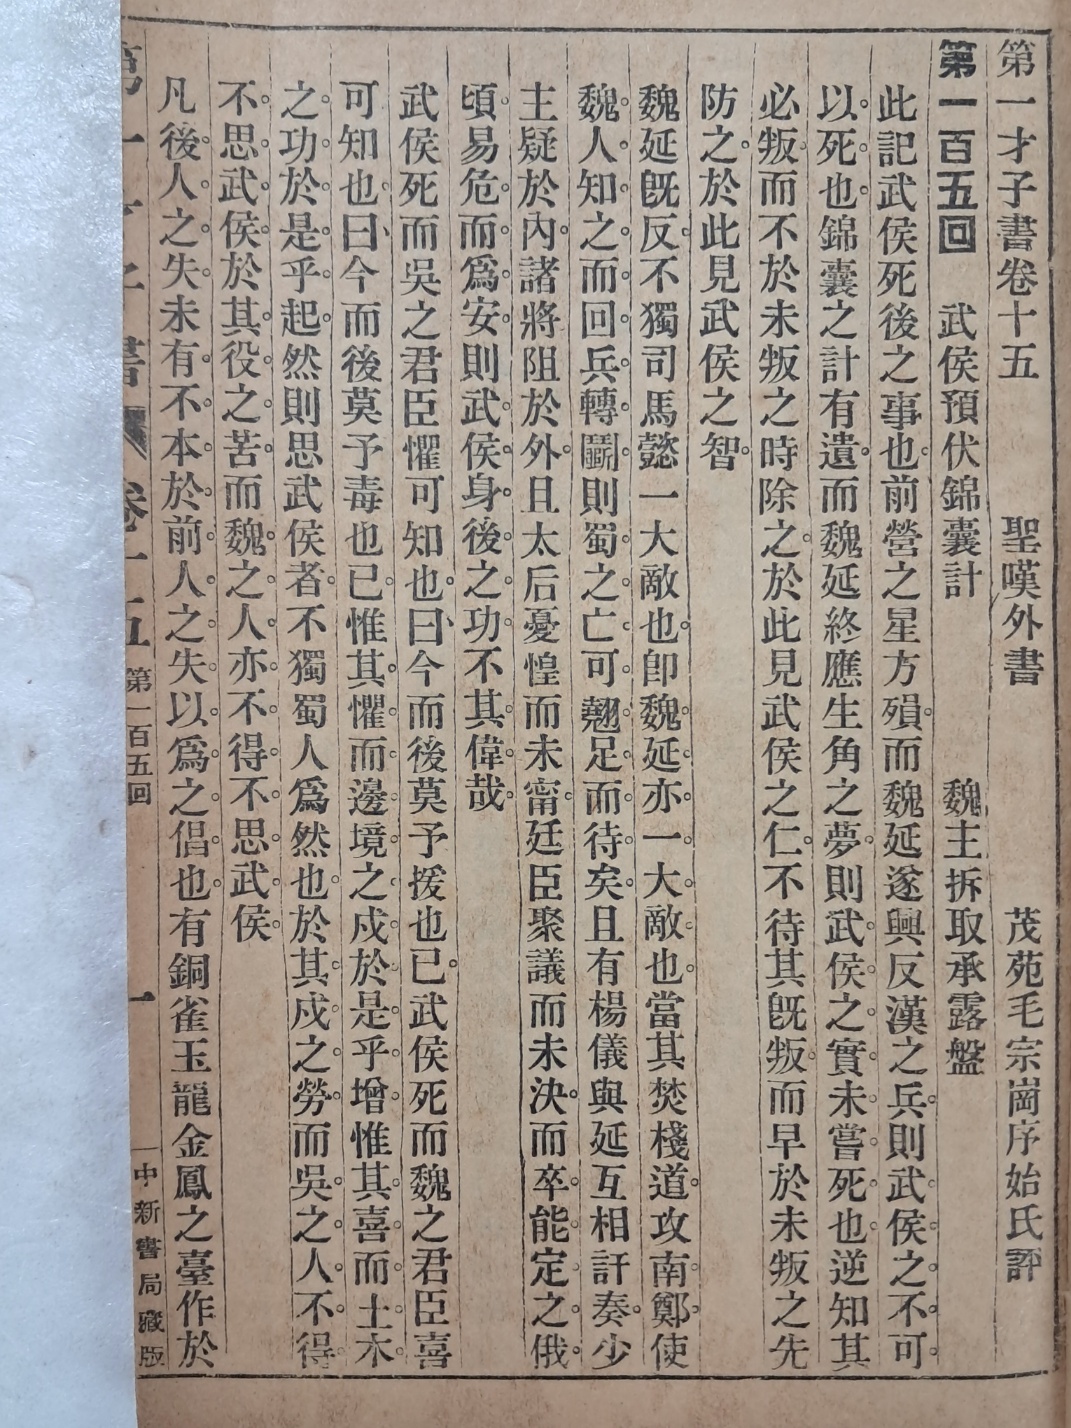 第一才子書卷十五　聖嘆外書　茂苑毛宗崗序始氏評
第一百五回　武侯預伏錦囊計　魏主拆取承露盤
此記武侯死後之事也前營之星方殞而魏延遂興反漢之兵則武侯之不可
以死也錦囊之計有遺而魏延終應生角之夢則武侯之實未嘗死也逆知其
必叛而不於未叛之時除之於此見武侯之仁不待其旣叛而早於未叛之先
防之於此見武侯之智
魏延旣反不獨司馬懿一大敵也卽魏延亦一大敵也當其焚棧道攻南鄭使
魏人知之而回兵轉鬭則蜀之亡可翹足而待矣且有楊儀與延互相訐奏少
主疑於內諸將阻於外且太后憂惶而未甯廷臣聚議而未決而卒能定之俄
頃易危而爲安則武侯身後之功不其偉哉
武侯死而吳之君臣懼可知也曰今而後莫予援也已武侯死而魏之君臣喜
可知也曰今而後莫予毒也已惟其懼而邊境之戍於是乎增惟其喜而土木
之功於是乎起然則思武侯者不獨蜀人爲然也於其戍之勞而吳之人不得
不思武侯於其役之苦而魏之人亦不得不思武侯
凡後人之失未有不本於前人之失以爲之倡也有銅雀玉龍金鳳之臺作於
第一才子書　卷十五　第一百五回　一　中新書局藏版